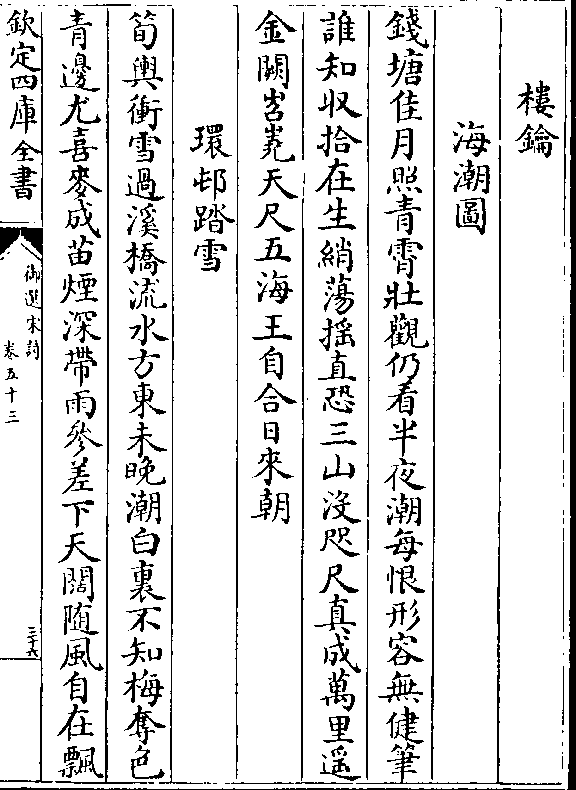 樓鑰
海潮圖
錢塘佳月照青霄壯觀仍看半夜潮每恨形容無健筆
誰知収拾在生綃蕩揺直恐三山沒咫尺真成萬里遥
金闕岧嶤天尺五海王自合日來朝
環邨踏雪
筍輿衝雪過溪橋流水方東未晚潮白裏不知梅奪色
青邊尤喜麥成苗煙深帶雨參差下天闊随風自在飄
欽定四庫全書
御選宋詩
卷五十三
三十六